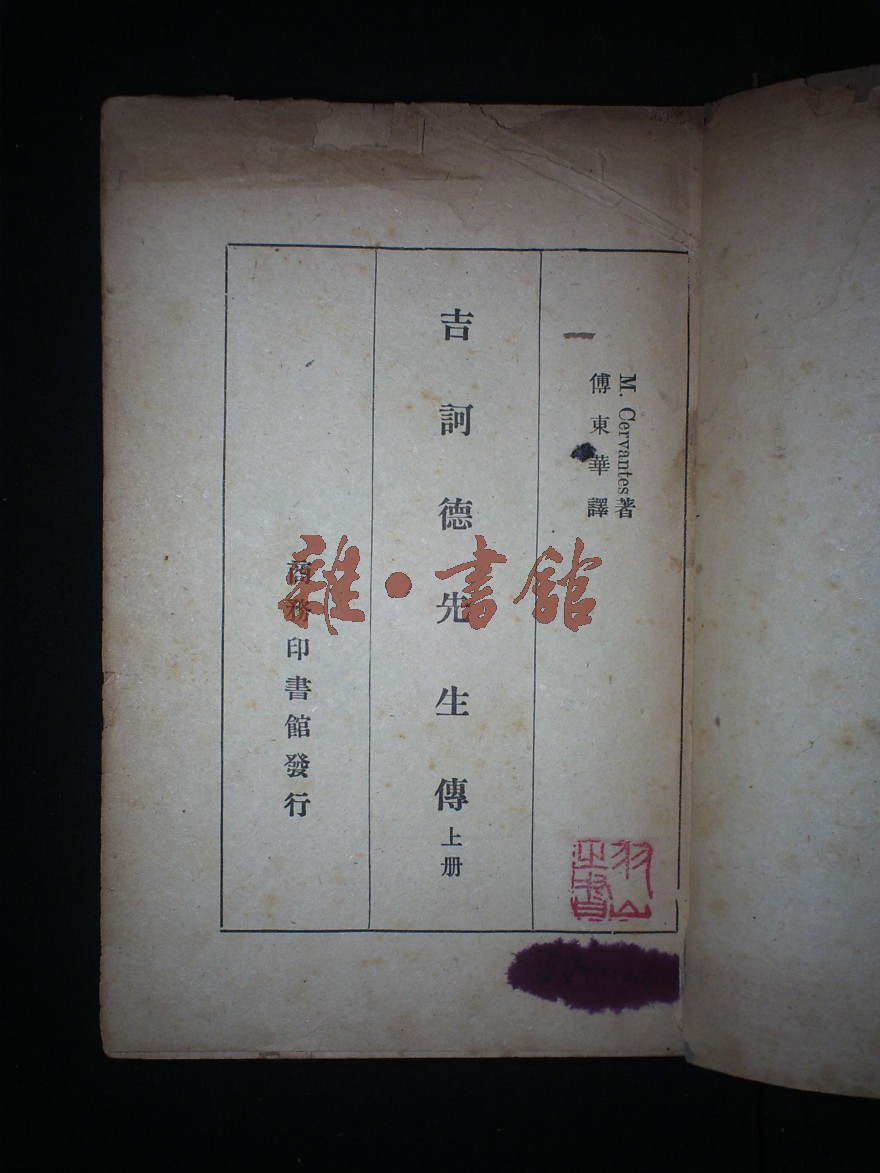 M. Cervantes著
傅東華譯
吉訶德先生傳 上册
商務印書館發行
雜·書館
羽山
之書